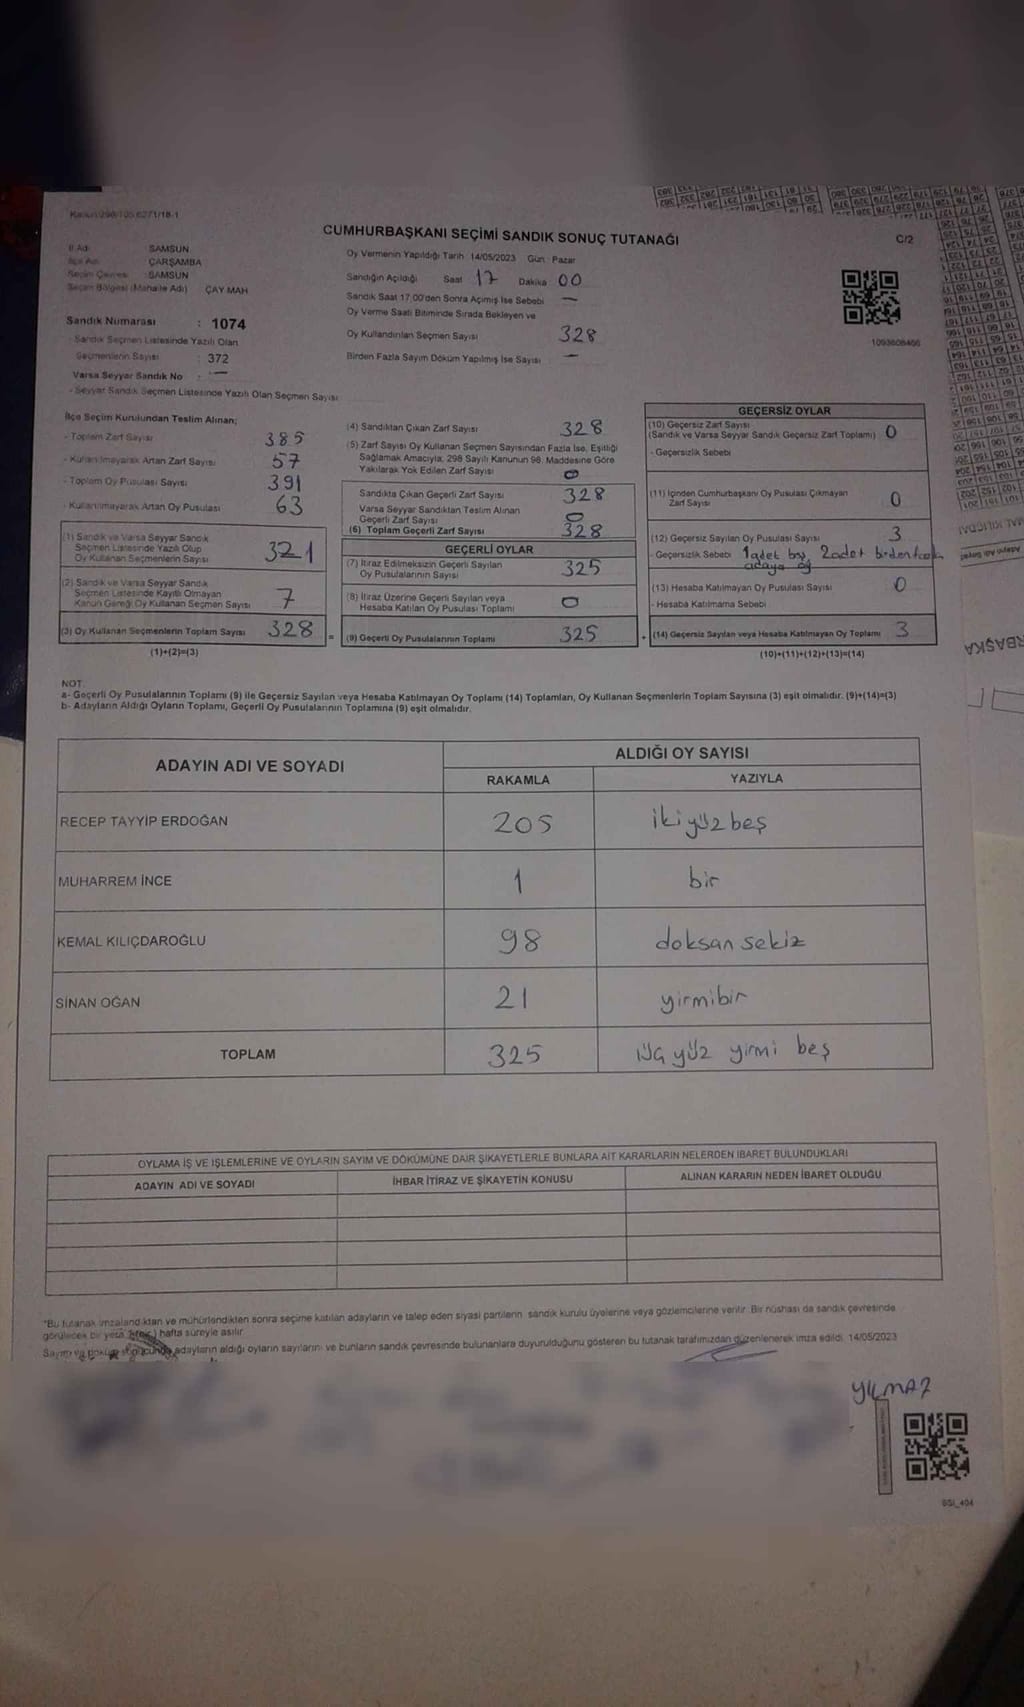 CUMHURBAŞKANI SEÇİMİ SANDIK SONUÇ TUTANAĞI
C/2
İl Adı SAMSUN
İlçe Adı ÇARŞAMBA
Seçim Çevresi SAMSUN
Seçim Bölgesi (Mahalle Adı) ÇAY MAH
Sandık Numarası : 1074
- Sandık Seçmen Listesinde Yazılı Olan
Seçmenlerin Sayısı : 372
Varsa Seyyar Sandık No : —
- Seyyar Sandık Seçmen Listesinde Yazılı Olan Seçmen Sayısı
Oy Vermenin Yapıldığı Tarih 14/05/2023 Gün : Pazar
Sandığın Açıldığı Saat 17 Dakika 00
Sandık Saat 17.00'den Sonra Açılmış İse Sebebi —
Oy Verme Saati Bitiminde Sırada Bekleyen ve
Oy Kullandırılan Seçmen Sayısı 328
Birden Fazla Sayım Döküm Yapılmış İse Sayısı —
1093608466
İlçe Seçim Kurulundan Teslim Alınan;
- Toplam Zarf Sayısı 385
- Kullanılmayarak Artan Zarf Sayısı 57
- Toplam Oy Pusulası Sayısı 391
- Kullanılmayarak Artan Oy Pusulası 63
(1) Sandık ve Varsa Seyyar Sandık
Seçmen Listesinde Yazılı Olup
Oy Kullanan Seçmenlerin Sayısı 321
(2) Sandık ve Varsa Seyyar Sandık
Seçmen Listesinde Kayıtlı Olmayan
Kanun Gereği Oy Kullanan Seçmen Sayısı 7
(3) Oy Kullanan Seçmenlerin Toplam Sayısı 328 =
(1)+(2)=(3)
(4) Sandıktan Çıkan Zarf Sayısı 328
(5) Zarf Sayısı Oy Kullanan Seçmen Sayısından Fazla İse, Eşitliği
Sağlamak Amacıyla, 298 Sayılı Kanunun 98. Maddesine Göre
Yakılarak Yok Edilen Zarf Sayısı 0
Sandıkta Çıkan Geçerli Zarf Sayısı 328
Varsa Seyyar Sandıktan Teslim Alınan
Geçerli Zarf Sayısı 0
(6) Toplam Geçerli Zarf Sayısı 328
GEÇERLİ OYLAR
(7) İtiraz Edilmeksizin Geçerli Sayılan
Oy Pusulalarının Sayısı 325
(8) İtiraz Üzerine Geçerli Sayılan veya
Hesaba Katılan Oy Pusulası Toplamı 0
(9) Geçerli Oy Pusulalarının Toplamı 325 +
GEÇERSİZ OYLAR
(10) Geçersiz Zarf Sayısı
(Sandık ve Varsa Seyyar Sandık Geçersiz Zarf Toplamı) 0
- Geçersizlik Sebebi
(11) İçinden Cumhurbaşkanı Oy Pusulası Çıkmayan
Zarf Sayısı 0
(12) Geçersiz Sayılan Oy Pusulası Sayısı 3
- Geçersizlik Sebebi 1 adet boş, 2 adet birden fazla
adaya oy
(13) Hesaba Katılmayan Oy Pusulası Sayısı 0
- Hesaba Katılmama Sebebi
(14) Geçersiz Sayılan veya Hesaba Katılmayan Oy Toplamı 3
(10)+(11)+(12)+(13)=(14)
NOT:
a- Geçerli Oy Pusulalarının Toplamı (9) ile Geçersiz Sayılan veya Hesaba Katılmayan Oy Toplamı (14) Toplamları, Oy Kullanan Seçmenlerin Toplam Sayısına (3) eşit olmalıdır. (9)+(14)=(3)
b- Adayların Aldığı Oyların Toplamı, Geçerli Oy Pusulalarının Toplamına (9) eşit olmalıdır.
ADAYIN ADI VE SOYADI
ALDIĞI OY SAYISI
RAKAMLA YAZIYLA
RECEP TAYYİP ERDOĞAN 205 iki yüz beş
MUHARREM İNCE 1 bir
KEMAL KILIÇDAROĞLU 98 doksan sekiz
SİNAN OĞAN 21 yirmibir
TOPLAM 325 üç yüz yirmi beş
OYLAMA İŞ VE İŞLEMLERİNE VE OYLARIN SAYIM VE DÖKÜMÜNE DAİR ŞİKAYETLERLE BUNLARA AİT KARARLARIN NELERDEN İBARET BULUNDUKLARI
ADAYIN ADI VE SOYADI İHBAR İTİRAZ VE ŞİKAYETİN KONUSU ALINAN KARARIN NEDEN İBARET OLDUĞU
"Bu tutanak imzalandıktan ve mühürlendikten sonra seçime katılan adayların ve talep eden siyasi partilerin sandık kurulu üyelerine veya gözlemcilerine verilir. Bir nüshası da sandık çevresinde
görülecek bir yere hafta süreyle asılır.
Sayım ve döküm sonucunda adayların aldığı oyların sayılarını ve bunların sandık çevresinde bulunanlara duyurulduğunu gösteren bu tutanak tarafımızdan düzenlenerek imza edildi. 14/05/2023
YILMAZ
SSI_404